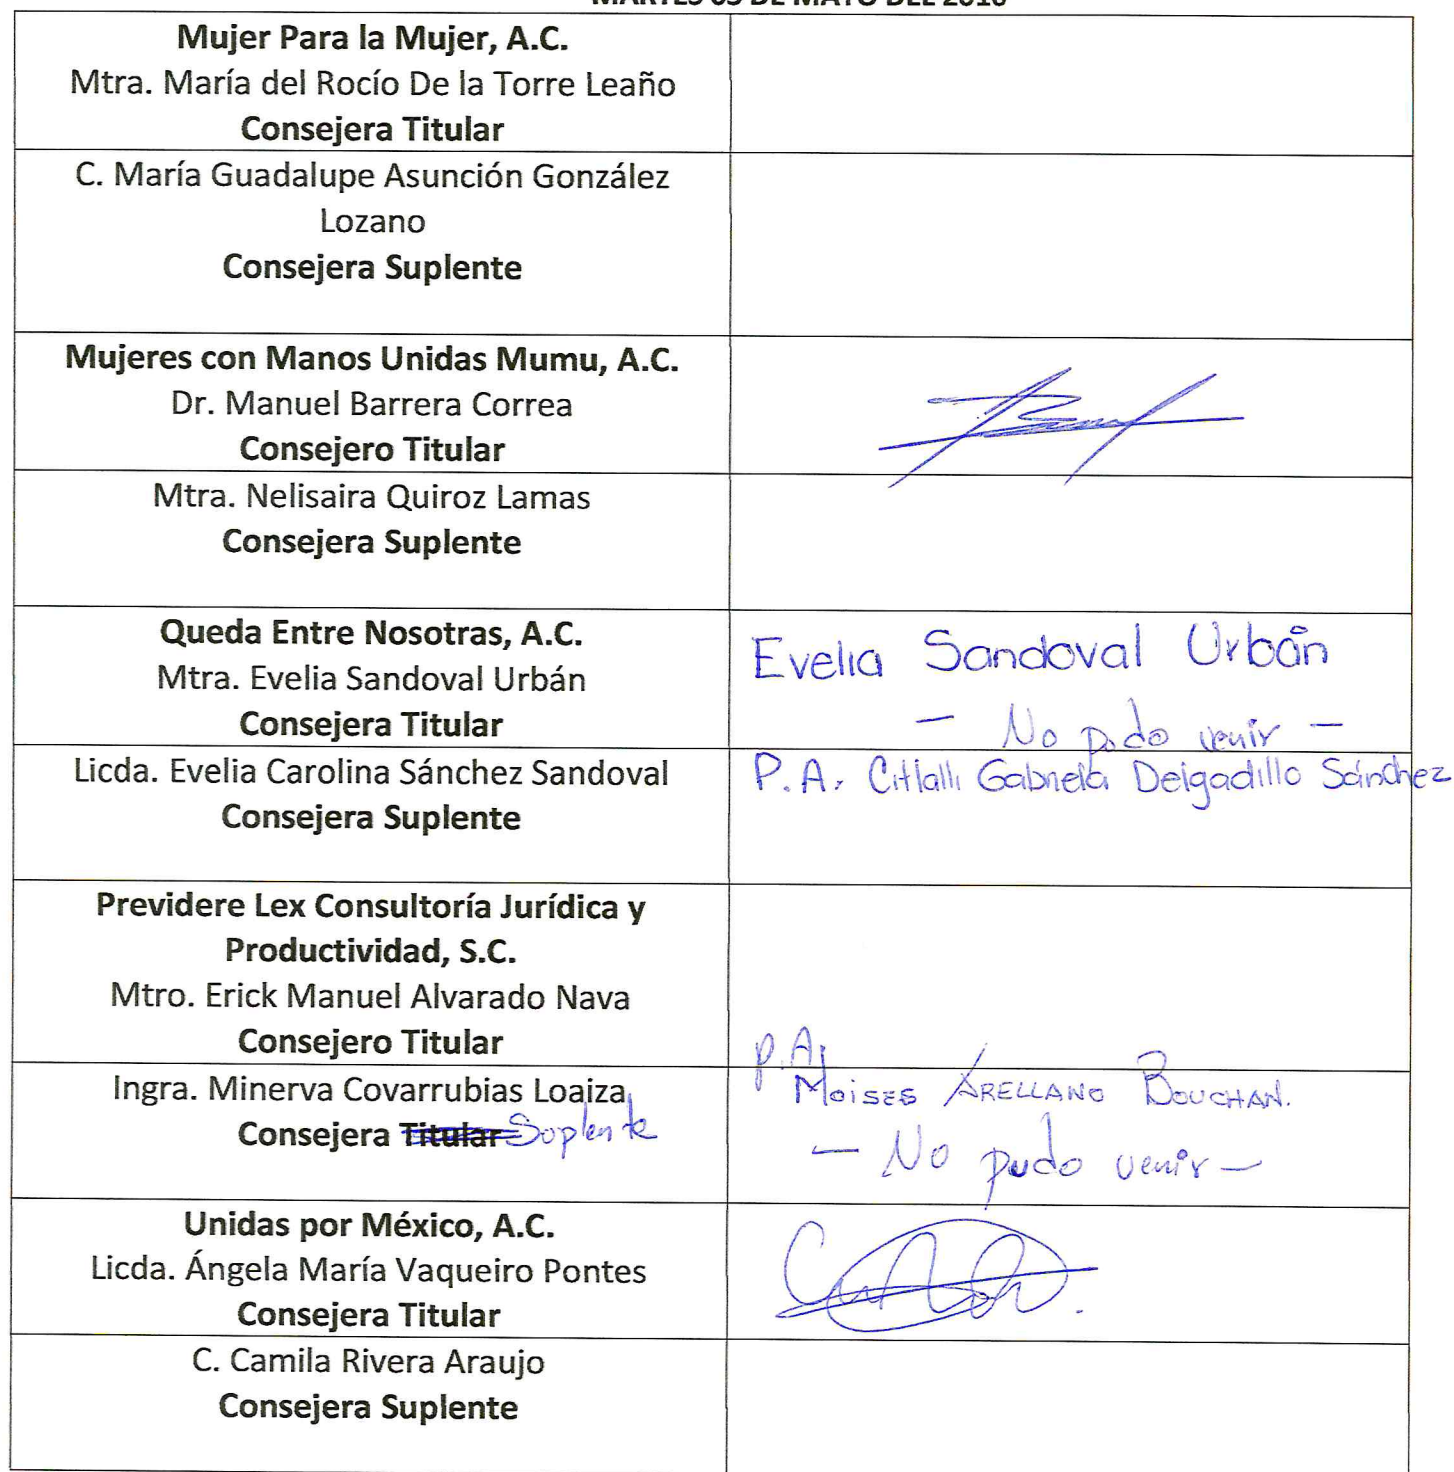 MARTES 03 DE MAYO DEL 2016
Mujer Para la Mujer, A.C.
Mtra. María del Rocío De la Torre Leaño
Consejera Titular
C. María Guadalupe Asunción González
Lozano
Consejera Suplente
Mujeres con Manos Unidas Mumu, A.C.
Dr. Manuel Barrera Correa
Consejero Titular
Mtra. Nelisaira Quiroz Lamas
Consejera Suplente
Queda Entre Nosotras, A.C.
Mtra. Evelia Sandoval Urbán
Consejera Titular
Evelia Sandoval Urbán
— No pudo venir —
Licda. Evelia Carolina Sánchez Sandoval
Consejera Suplente
P.A. Citlalli Gabriela Delgadillo Sánchez
Previdere Lex Consultoría Jurídica y
Productividad, S.C.
Mtro. Erick Manuel Alvarado Nava
Consejero Titular
Ingra. Minerva Covarrubias Loaiza
Consejera Titular Suplente
P.A.
MOISES ARELLANO BOUCHAN.
— No pudo venir —
Unidas por México, A.C.
Licda. Ángela María Vaqueiro Pontes
Consejera Titular
C. Camila Rivera Araujo
Consejera Suplente